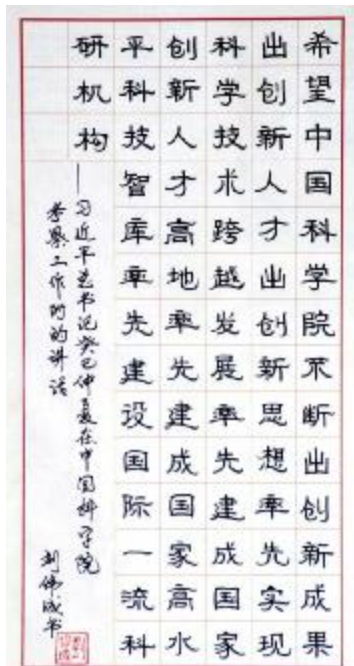 希望中国科学院不断出创新成果
出创新人才出创新思想率先实现
科学技术跨越发展率先建成国家
创新人才高地率先建成国家高水
平科技智库率先建设国际一流科
研机构
——习近平总书记癸巳仲夏在中国科学院
考察工作时的讲话
刘伟成书